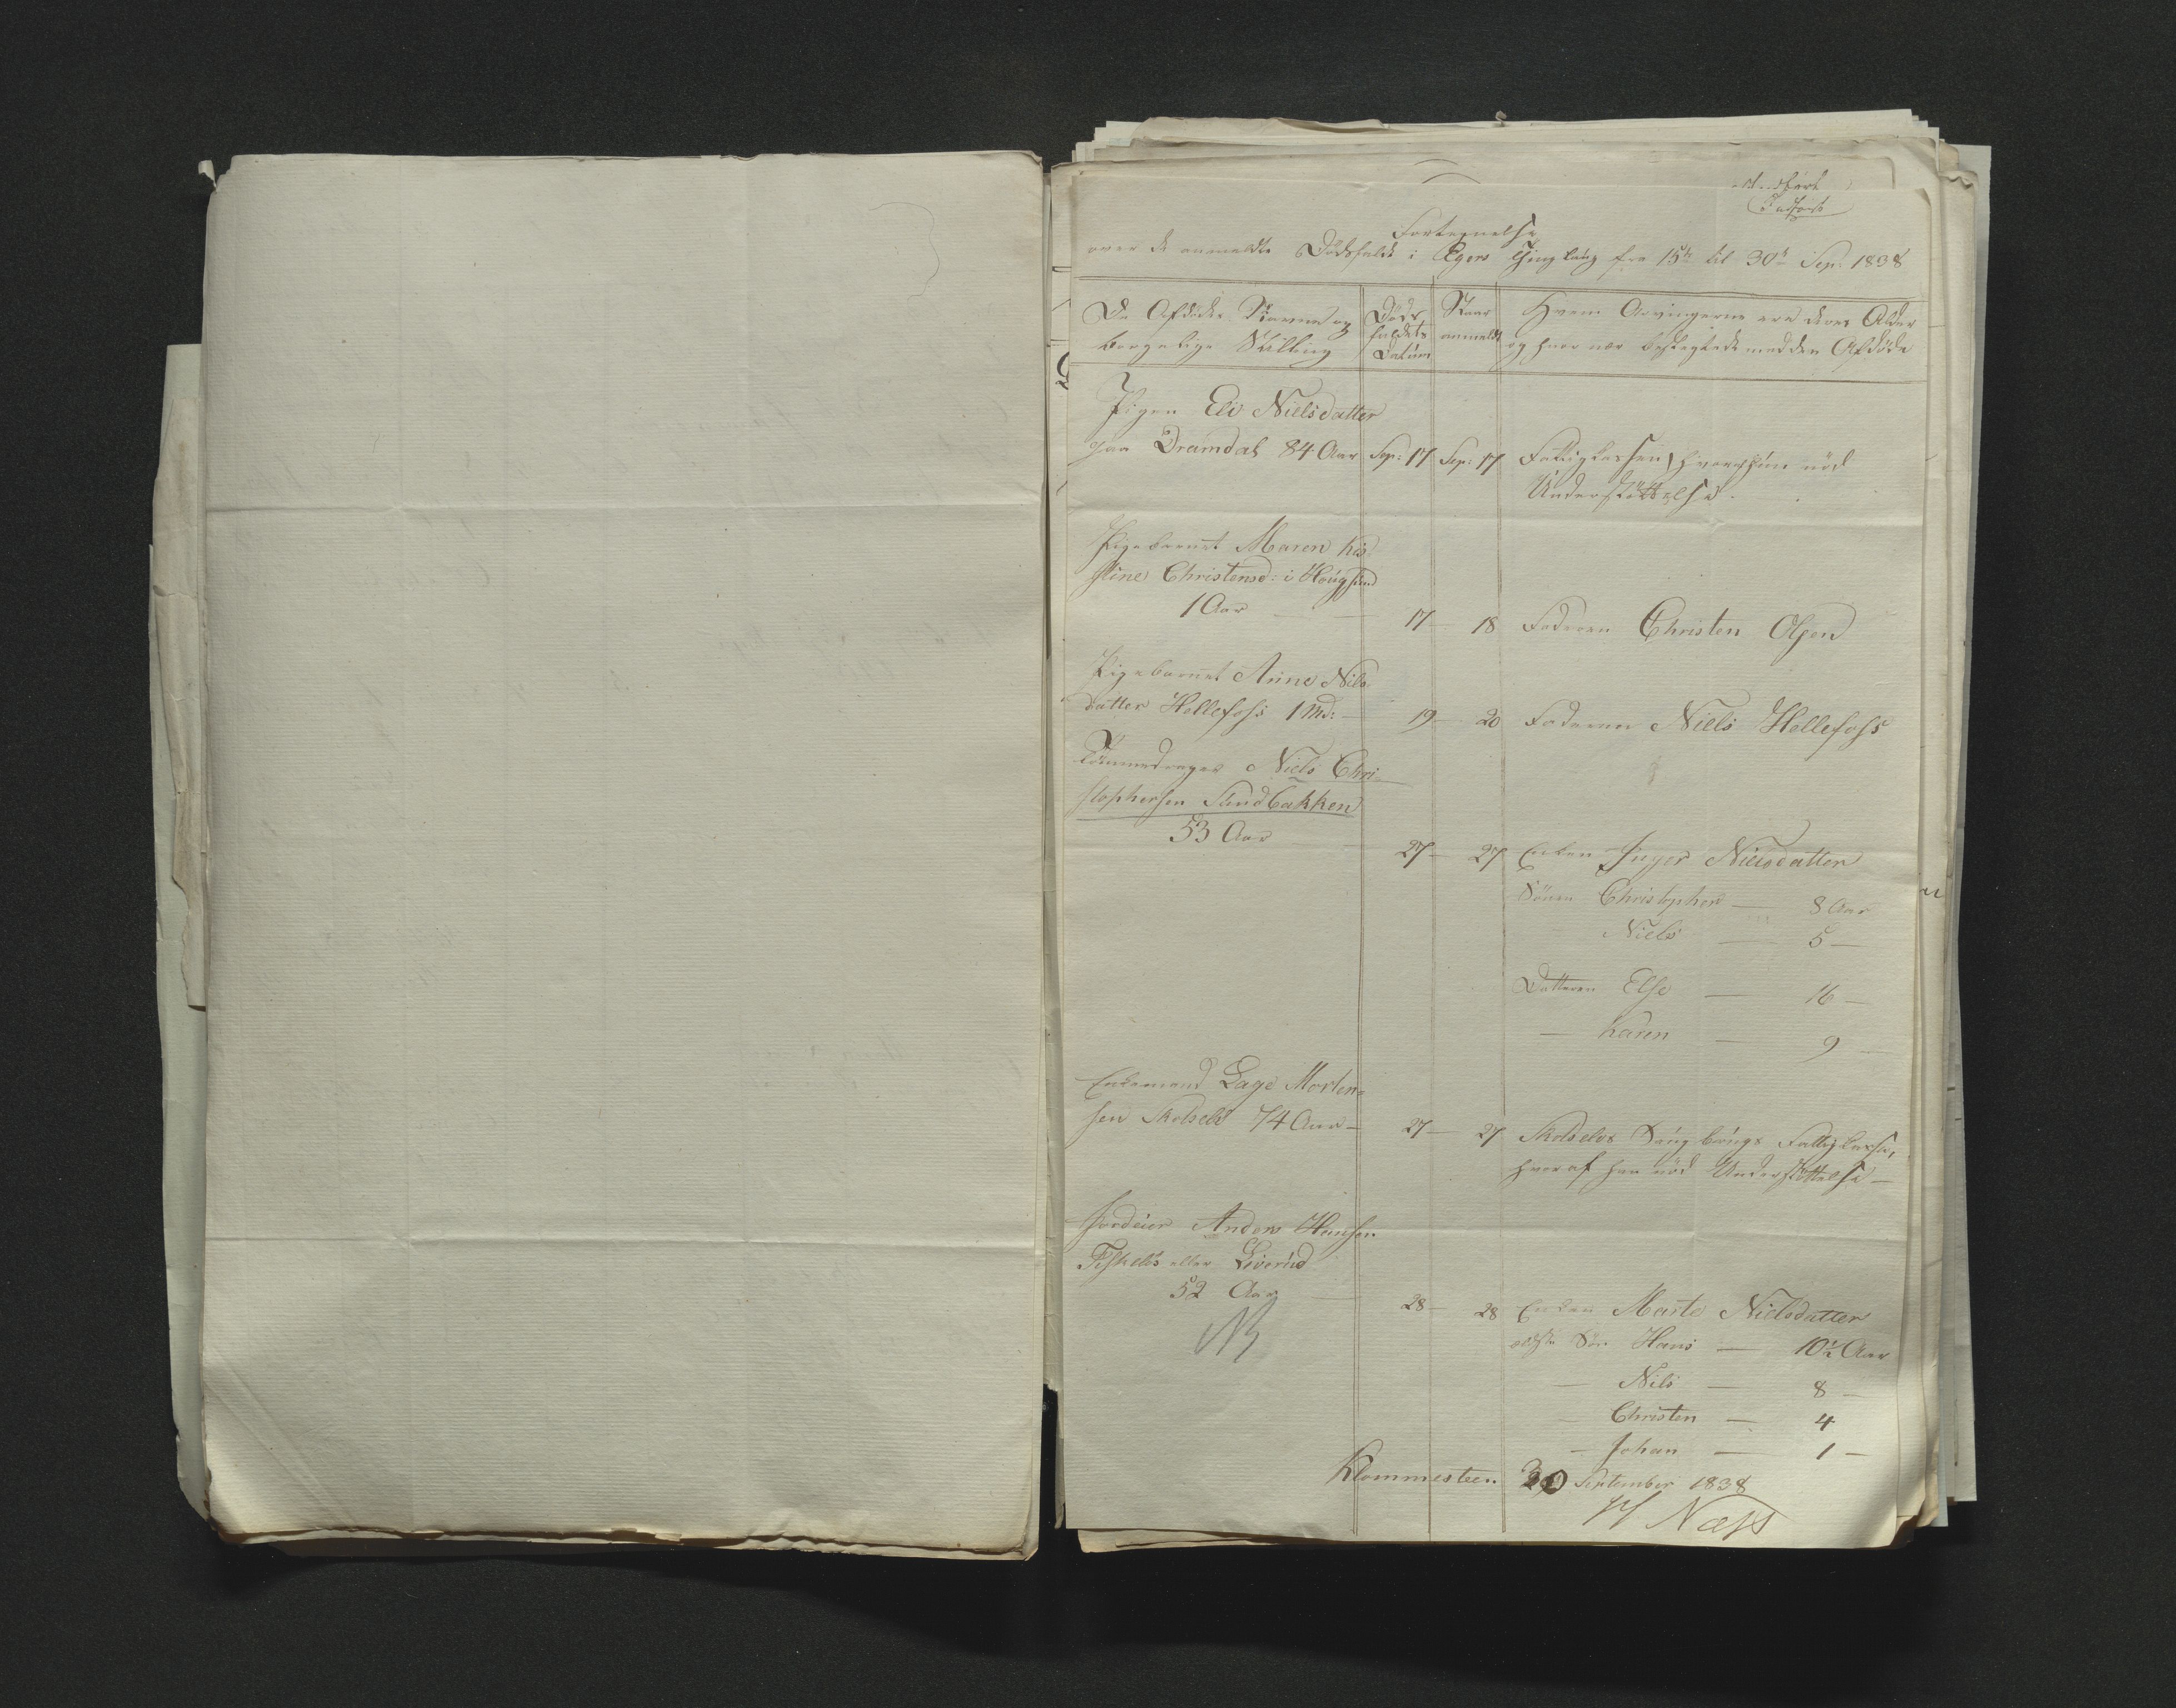 Indført
Fortegnelse
over de anmeldte Dødsfalde i Egers Thinglaug fra 15de til 30te Sep: 1838
De Afdødes Navne og
borgelige Stilling
Døds
faldets
Datúm
Naar
anmeldt
Hvem Arvingerne ere deres Alder
og hvor nær beslægtede med den Afdøde
Pigen Eli Nielsdatter
paa Dramdal 84 Aar Sep: 17 Sep: 17 Fattigkassen, hvoraf hún nød
Understøttelse.
Pigebarnet Maren Kir
stine Christensd: i Houg súnd
1 Aar 17 18 Faderen Christen Olsen
Pigebarnet Anne Nils
datter Hellefoss 1 Md: 19 20 Faderen Niels Hellefoss
Niels Chri-
stophersen Sandbakken
53 Aar 27 27 Enken Inger Nielsdatter
Sönen Christopher — 8 Aar
Niels — 5 —
Datteren Else — 16 —
— Karen — 9 —
Enkemand Lage Morten-
sen Skotselv 74 Aar — 27 — 27 Skotselvs Fattigkasse,
hvoraf han nød Understøttelse —
Jordeier Anders Hansen
Fiskeløs eller Liverúd
52 Aar 28 — 28 Enken Marte Nielsdatter
ældste Søn Hans — 10½ Aar
NB
— Nils — 8 —
— Christen — 4
— Johan — 1 —
Klommesteen 30 September 1838
Næss